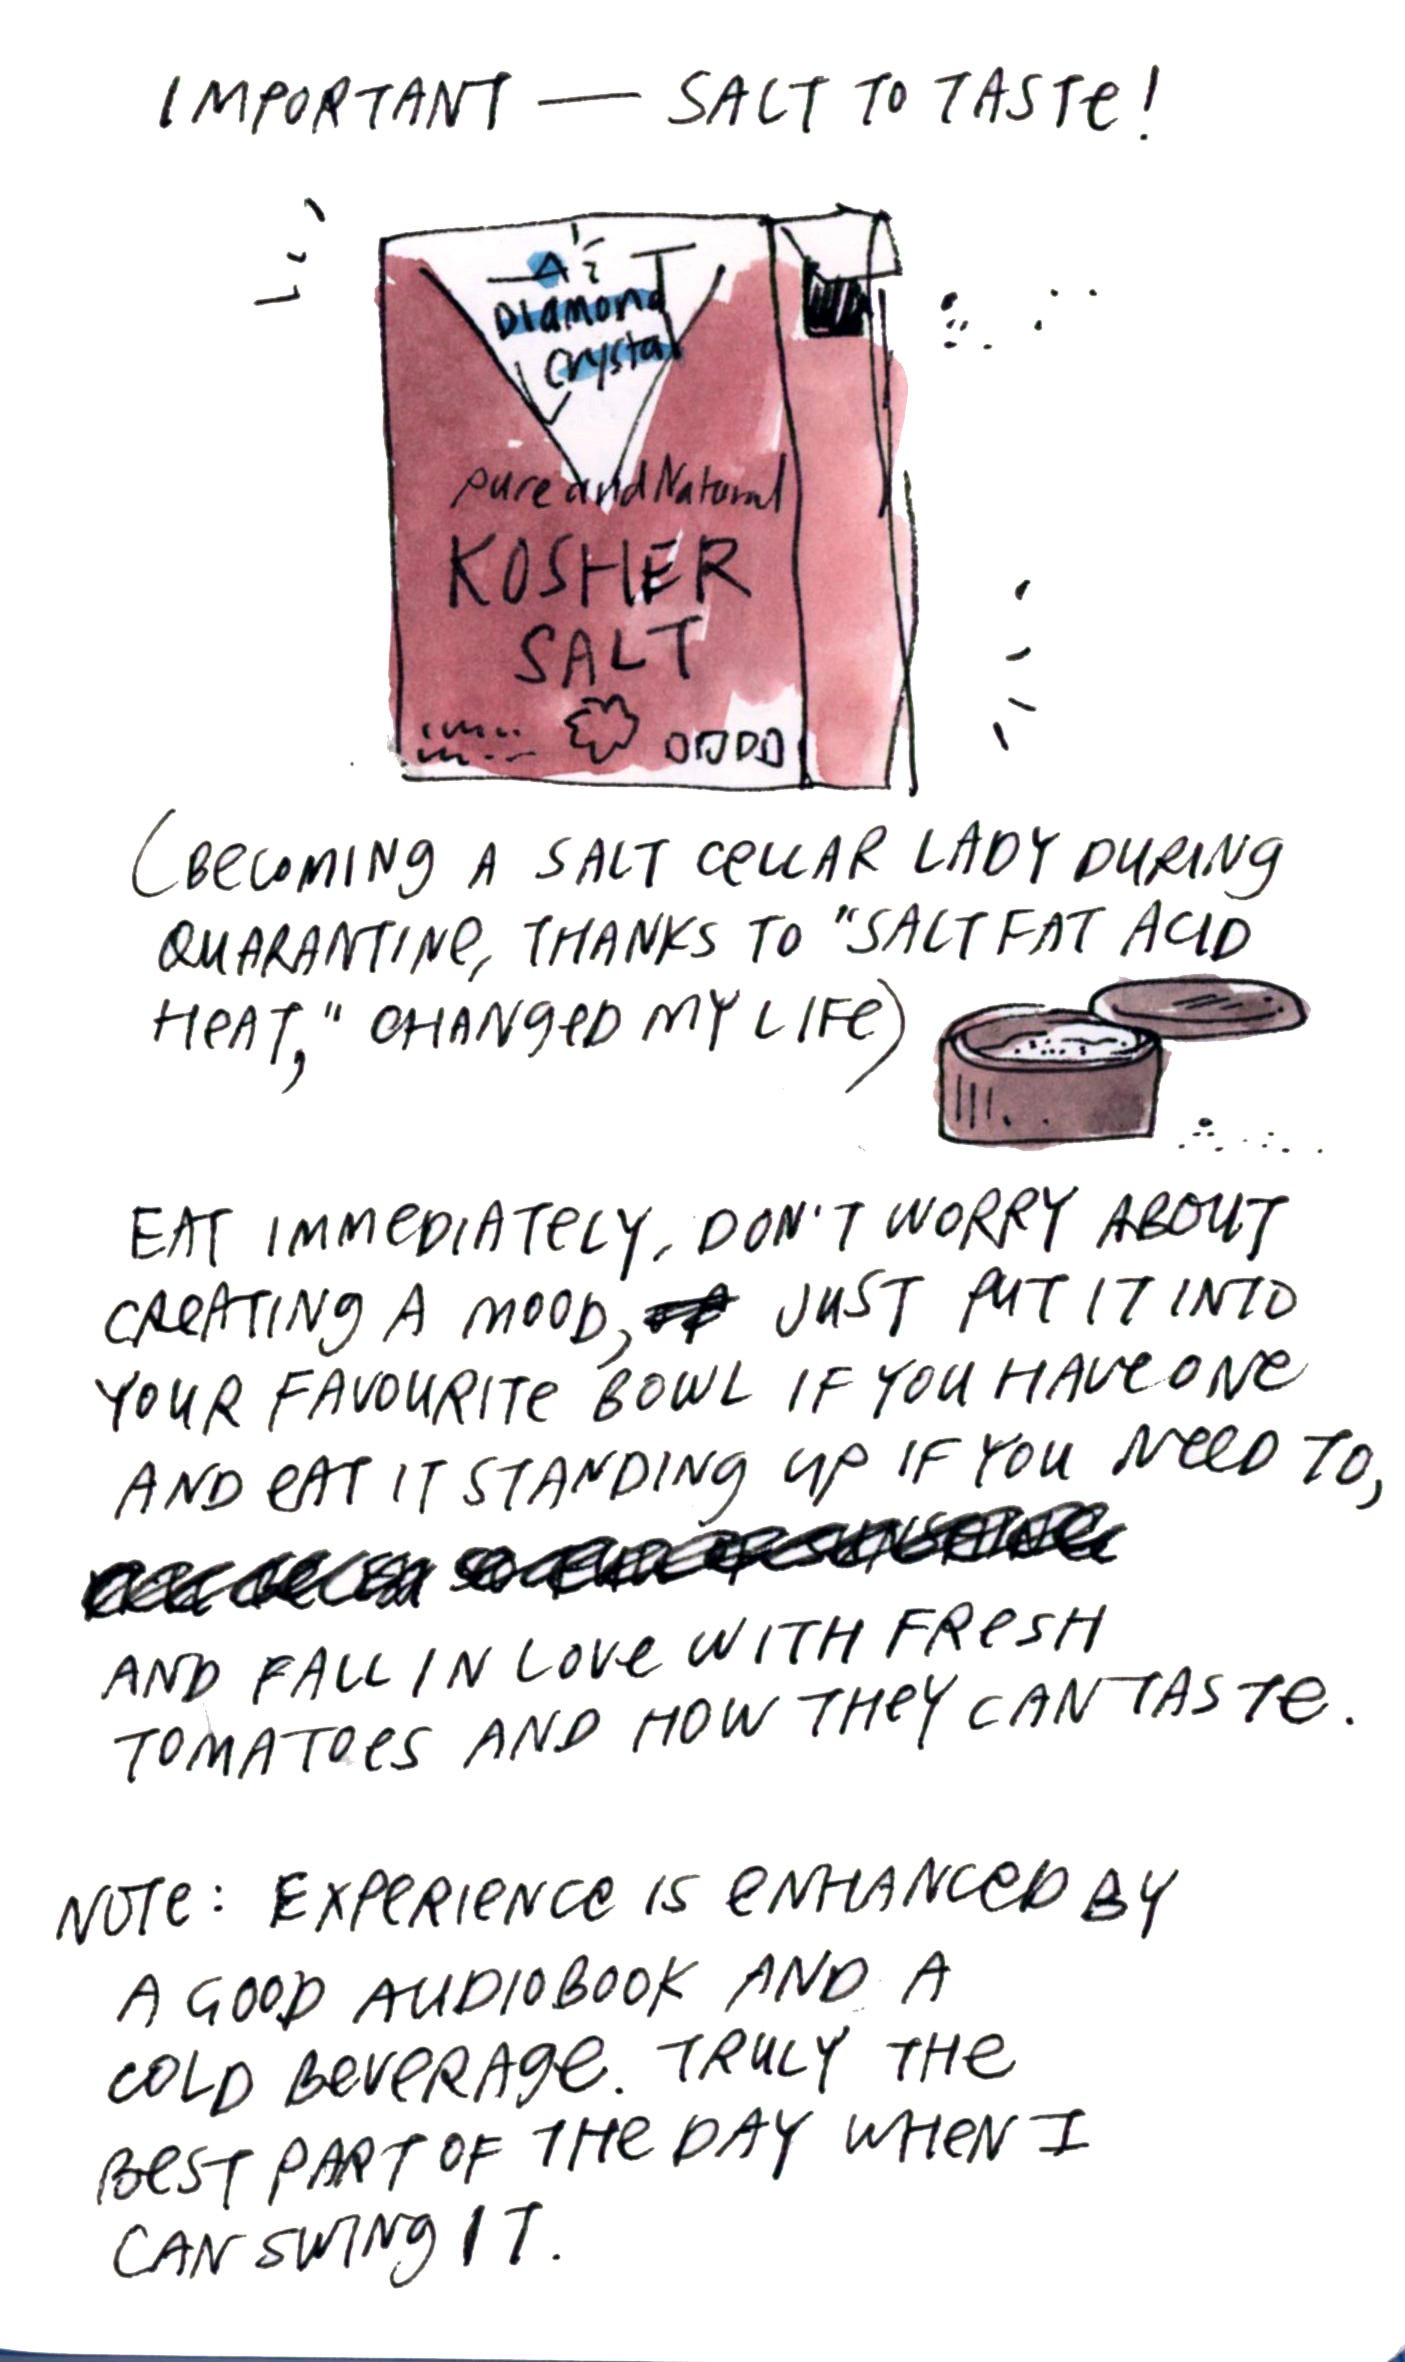 IMPORTANT — SALT TO TASTE!
DIAMOND
CRYSTAL
pure and Natural
KOSHER
SALT
(BECOMING A SALT CELLAR LADY DURING
QUARANTINE, THANKS TO "SALT FAT ACID
HEAT," CHANGED MY LIFE)
EAT IMMEDIATELY, DON'T WORRY ABOUT
CREATING A MOOD, JUST PUT IT INTO
YOUR FAVOURITE BOWL IF YOU HAVE ONE
AND EAT IT STANDING UP IF YOU NEED TO,
AND FALL IN LOVE WITH FRESH
TOMATOES AND HOW THEY CAN TASTE.
NOTE: EXPERIENCE IS ENHANCED BY
A GOOD AUDIOBOOK AND A
COLD BEVERAGE. TRULY THE
BEST PART OF THE DAY WHEN I
CAN SWING IT.